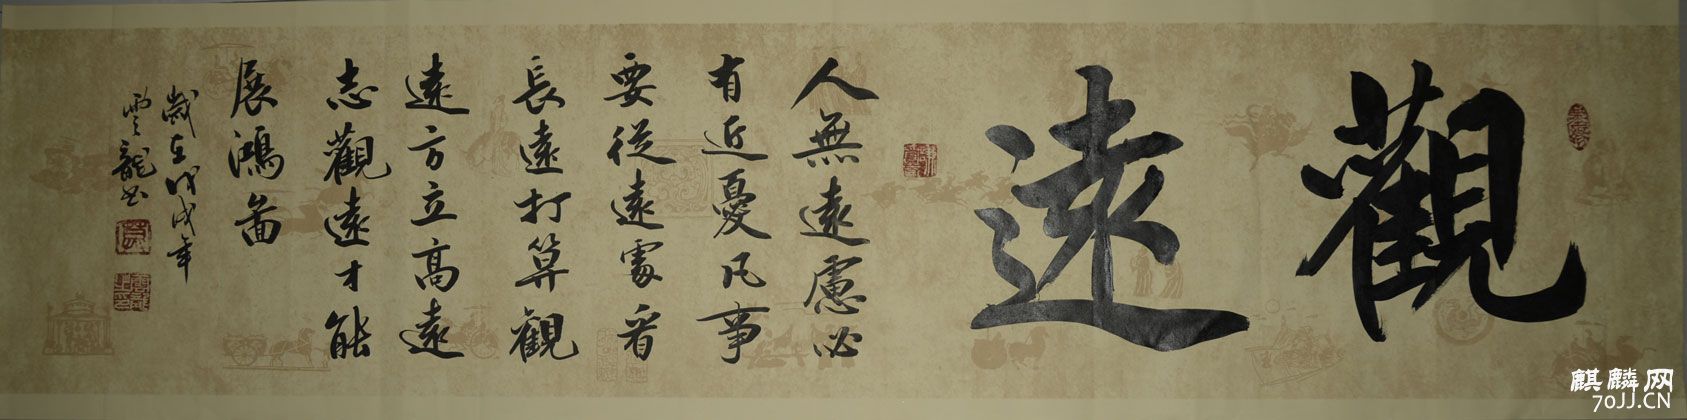 觀遠
人無遠慮必
有近憂凡事
要從遠處看
長遠打算觀
遠方立高遠
志觀遠才能
展鴻圖
歲在戊戌年
雲龍书
麒麟网
70JJ.CN